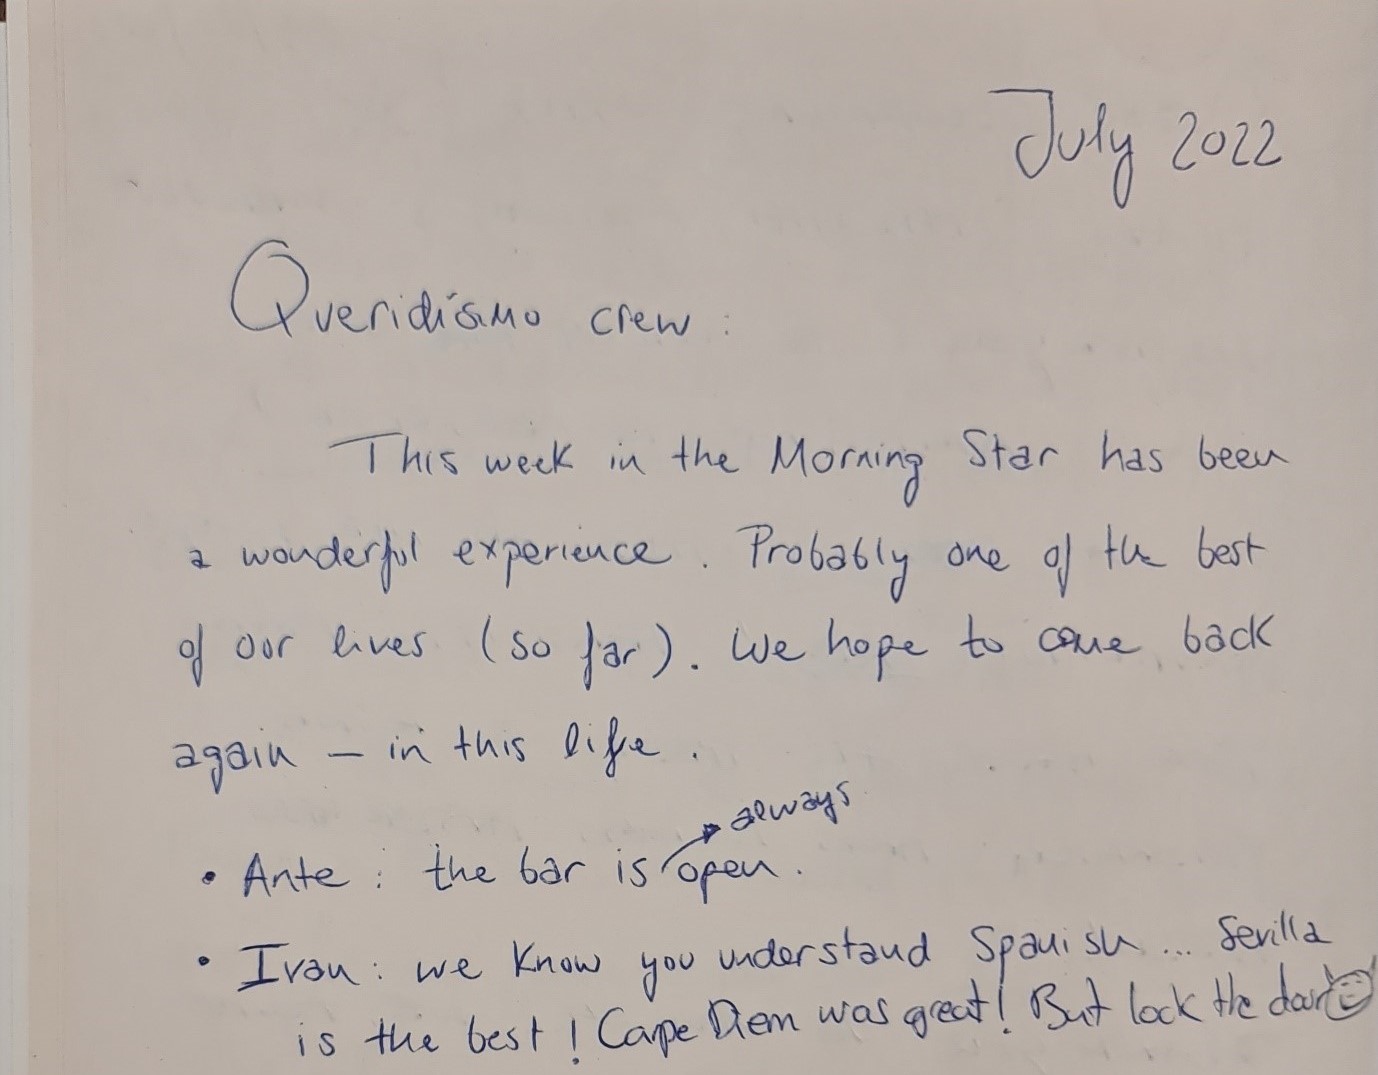 July 2022
Queridísimo crew:
This week in the Morning Star has been
a wonderful experience. Probably one of the best
of our lives (so far). We hope to come back
again – in this life.
always
• Ante: the bar is open.
• Ivan: we know you understand Spanish... Sevilla
is the best! Carpe Diem was great! But lock the door